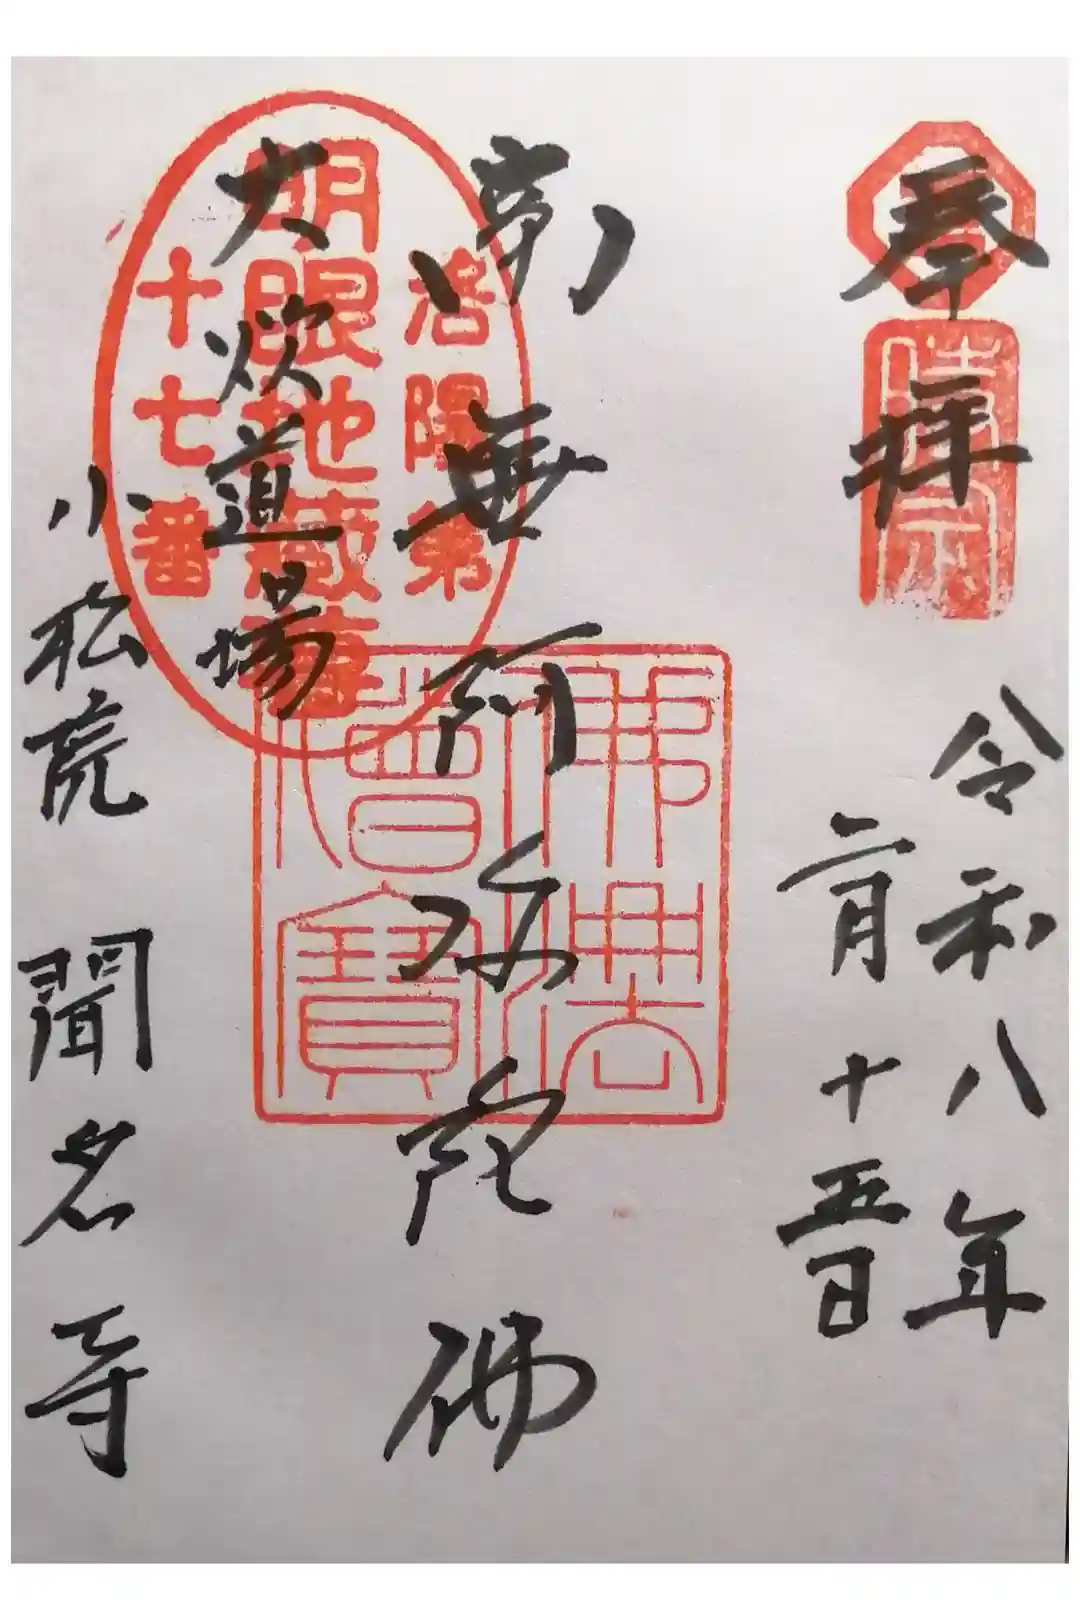 奉拝
時宗
令和八年
二月十五日
南無阿弥陀佛
佛法僧寶
洛陽第
明眼地蔵尊
十七番
大炊道場
小松院 聞名寺